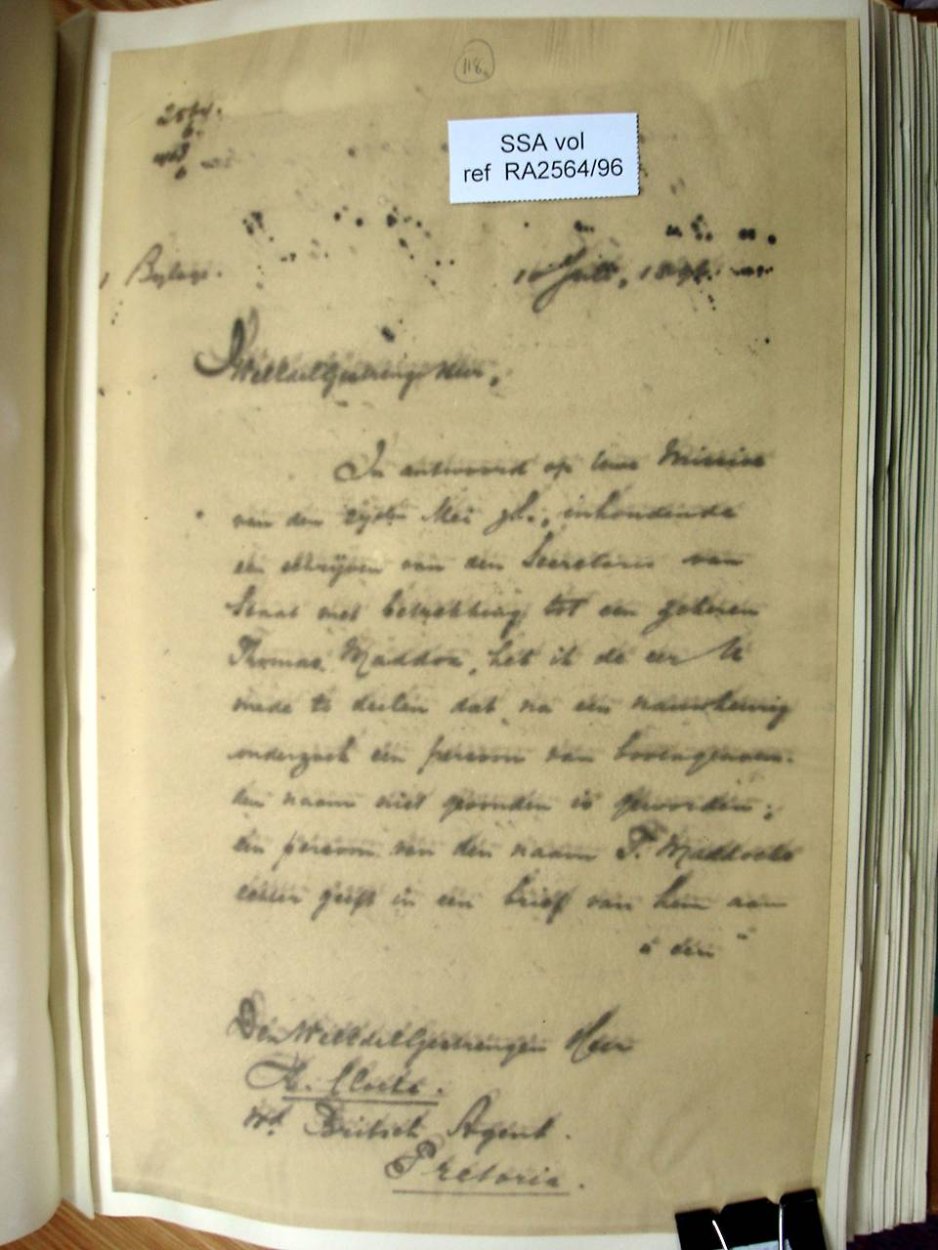 118.
SSA vol
ref RA2564/96
1 Bylage.
10 Juli, 1896.
WelEdelGestrenge Heer,
In antwoord op Uwe Missive
van den Mei jl., inhoudende
een schrijven van den Secretaris van
Staat met betrekking tot een zekeren
Thomas Maddox, heb ik de eer U
mede te deelen dat na een nauwkeurig
onderzoek een persoon van bovengenoem-
den naam niet gevonden is geworden;
een persoon van den naam T. Maddocks
echter geeft in een brief van hem aan
den
Den WelEdelGestrengen Heer
H. Cloete.
Wd British Agent.
Pretoria.